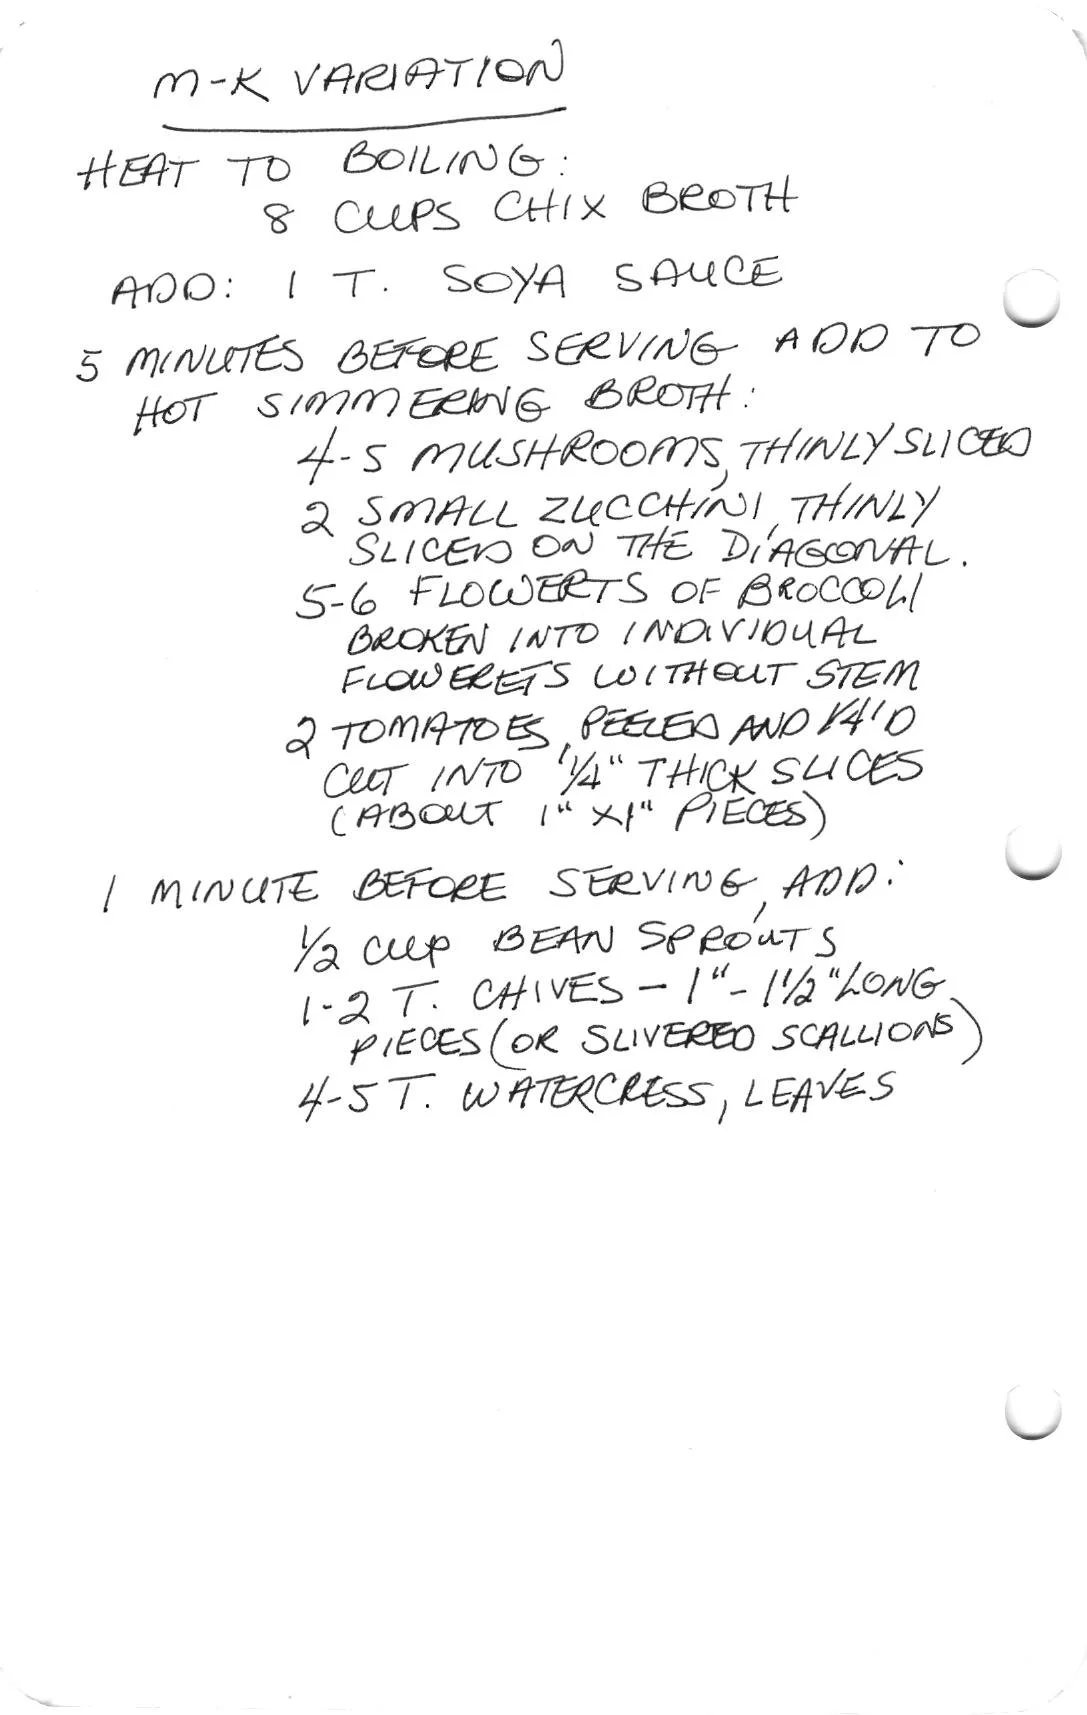 M-K VARIATION
HEAT TO BOILING:
8 CUPS CHIX BROTH
ADD: 1 T. SOYA SAUCE
5 MINUTES BEFORE SERVING ADD TO
HOT SIMMERING BROTH:
4-5 MUSHROOMS, THINLY SLICED
2 SMALL ZUCCHINI, THINLY
SLICED ON THE DIAGONAL.
5-6 FLOWERTS OF BROCCOLI
BROKEN INTO INDIVIDUAL
FLOWERETS WITHOUT STEM
2 TOMATOES, PEELED AND 1/4'D
CUT INTO 1/4" THICK SLICES
(ABOUT 1" X 1" PIECES)
1 MINUTE BEFORE SERVING, ADD:
1/2 CUP BEAN SPROUTS
1-2 T. CHIVES - 1" - 1 1/2" LONG
PIECES (OR SLIVERED SCALLIONS)
4-5 T. WATERCRESS, LEAVES